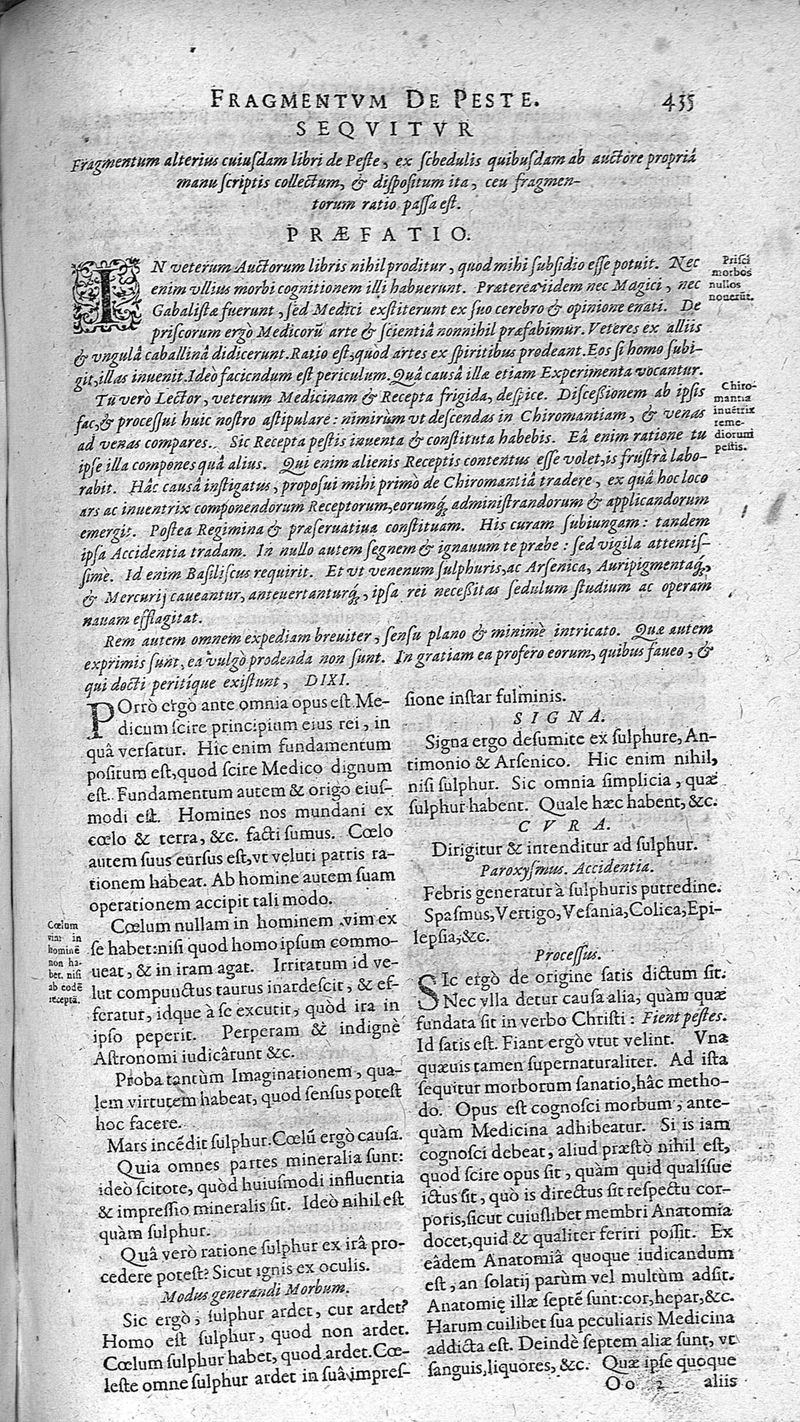 FRAGMENTVM DE PESTE. 435
SEQVITVR
Fragmentum alterius cuiusdam libri de Peste, ex schedulis quibusdam ab auctore propriâ
manu scriptis collectum, & dispositum ita, ceu fragmen-
torum ratio passa est.
PRÆFATIO.
IN veterum Auctorum libris nihil proditur, quod mihi subsidio esse potuit. Nec
enim vllius morbi cognitionem illi habuerunt. Præterea iidem nec Magici, nec
Gabalistæ fuerunt, sed Medici exstiterunt ex suo cerebro & opinione enati. De
priscorum ergò Medicorũ arte & scientiâ nonnihil præfabimur. Veteres ex alliis
& vngulâ caballinâ didicerunt. Ratio est, quod artes ex spiritibus prodeant. Eos si homo subi-
git, illas inuenit. Ideò faciendum est periculum. Quâ causâ illæ etiam Experimenta vocantur.
Tu verò Lector, veterum Medicinam & Recepta frigida, despice. Discessionem ab ipsis
fac, & processui huic nostro astipulare: nimirùm vt descendas in Chiromantiam, & venas
ad venas compares. Sic Recepta pestis inuenta & constituta habebis. Eâ enim ratione tu
ipse illa compones quâ alius. Qui enim alienis Receptis contentus esse volet, is frustrà labo-
rabit. Hâc causâ instigatus, proposui mihi primò de Chiromantiâ tradere, ex quâ hoc loco
ars ac inuentrix componendorum Receptorum, eorumq́; administrandorum & applicandorum
emergit. Postea Regimina & præseruatiua constituam. His curam subiungam: tandem
ipsa Accidentia tradam. In nullo autem segnem & ignauum te præbe: sed vigila attentis-
simè. Id enim Basiliscus requirit. Et vt venenum sulphuris, ac Arsenica, Auripigmentaq́;,
& Mercurij caueantur, anteuertanturq́;, ipsa rei necessitas sedulum studium ac operam
nauam efflagitat.
Rem autem omnem expediam breuiter, sensu plano & minimè intricato. Quæ autem
exprimis sunt, ea vulgò prodenda non sunt. In gratiam ea profero eorum, quibus faueo, &
qui docti peritique existunt, DIXI.
Prisci
morbos
nullos
nouerũt.
Chiro-
mantia
inuẽtrix
reme-
diorum
pestis.
POrrò ergò ante omnia opus est Me-
dicum scire principium eius rei, in
quâ versatur. Hic enim fundamentum
positum est, quod scire Medico dignum
est. Fundamentum autem & origo eius-
modi est. Homines nos mundani ex
cœlo & terra, &c. facti sumus. Cœlo
autem suus cursus est, vt veluti patris ra-
tionem habeat. Ab homine autem suam
operationem accipit tali modo.
Cœlum nullam in hominem vim ex
se habet: nisi quod homo ipsum commo-
ueat, & in iram agat. Irritatum id ve-
lut compunctus taurus inardescit, & ef-
feratur, idque à se excutit, quòd ira in
ipso peperit. Perperam & indignè
Astronomi iudicârunt &c.
Proba tantùm Imaginationem, qua-
lem virtutem habeat, quod sensus potest
hoc facere.
Mars incẽdit sulphur. Cœlũ ergò causa.
Quia omnes partes mineralia sunt:
ideò scitote, quòd huiusmodi influentia
& impressio mineralis sit. Ideò nihil est
quàm sulphur.
Quâ verò ratione sulphur ex irâ pro-
cedere potest? Sicut ignis ex oculis.
Modus generandi Morbum.
Sic ergò, sulphur ardet, cur ardet?
Homo est sulphur, quod non ardet.
Cœlum sulphur habet, quod ardet. Cœ-
leste omne sulphur ardet in suâ impres-
Cœlum
vim in
hominẽ
non ha-
bet, nisi
ab eodẽ
receptã.
sione instar fulminis.
SIGNA.
Signa ergo desumite ex sulphure, An-
timonio & Arsenico. Hic enim nihil,
nisi sulphur. Sic omnia simplicia, quæ
sulphur habent. Quale hæc habent, &c.
CVRA.
Dirigitur & intenditur ad sulphur.
Paroxysmus. Accidentia.
Febris generatur à sulphuris putredine.
Spasmus, Vertigo, Vesania, Colica, Epi-
lepsia, &c.
Processus.
SIc ergò de origine satis dictum sit.
Nec vlla detur causa alia, quàm quæ
fundata sit in verbo Christi: Fient pestes.
Id satis est. Fiant ergò vtut velint. Vna
quæuis tamen supernaturaliter. Ad ista
sequitur morborum sanatio, hâc metho-
do. Opus est cognosci morbum, ante-
quàm Medicina adhibeatur. Si is iam
cognosci debeat, aliud præstò nihil est,
quod scire opus sit, quàm quid qualisue
ictus sit, quò is directus sit respectu cor-
poris, sicut cuiuslibet membri Anatomia
docet, quid & qualiter feriri possit. Ex
eâdem Anatomiâ quoque iudicandum
est, an solatij parùm vel multùm adsit.
Anatomię illæ septẽ sunt: cor, hepar, &c.
Harum cuilibet sua peculiaris Medicina
addicta est. Deindè septem aliæ sunt, vt
sanguis, liquores, &c. Quæ ipse quoque
Oo 2 aliis